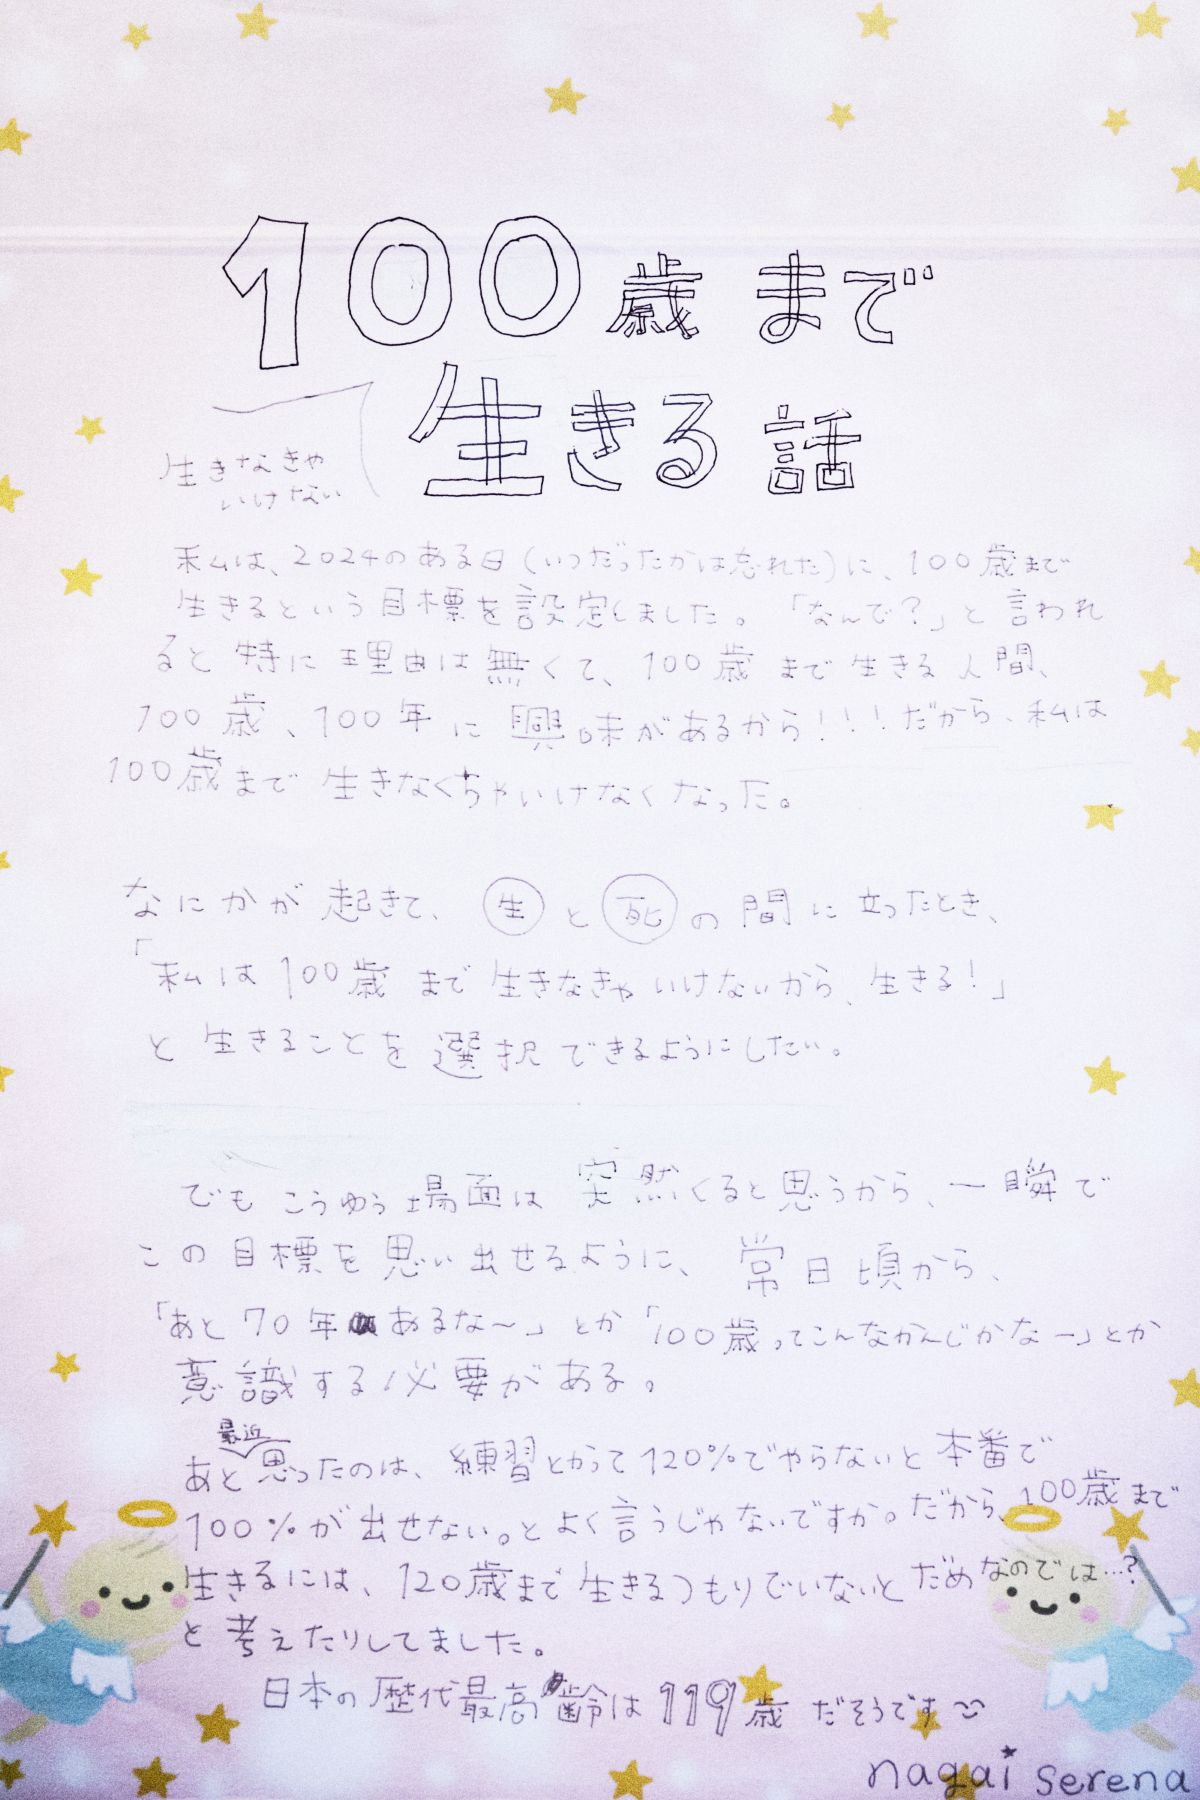 100歳まで
生きる話
生きなきゃ
いけない
私は、2024のある日(いつだったかは忘れた)に、100歳まで
生きるという目標を設定しました。「なんで?」と言われ
ると特に理由は無くて、100歳まで生きる人間、
100歳、100年に興味があるから!!!だから、私は
100歳まで生きなくちゃいけなくなった。
なにかが起きて、生と死の間に立ったとき、
「私は100歳まで生きなきゃいけないから、生きる!」
と生きることを選択できるようにしたい。
でもこうゆう場面は突然くると思うから、一瞬で
この目標を思い出せるように、常日頃から、
「あと70年あるな〜」とか「100歳ってこんなかんじかなー」とか
意識する必要がある。
最近
あと思ったのは、練習とかって120%でやらないと本番で
100%が出せない。とよく言うじゃないですか。だから、100歳まで
生きるには、120歳まで生きるつもりでいないとだめなのでは…?
と考えたりしてました。
日本の歴代最高齢は119歳だそうです
nagai serena